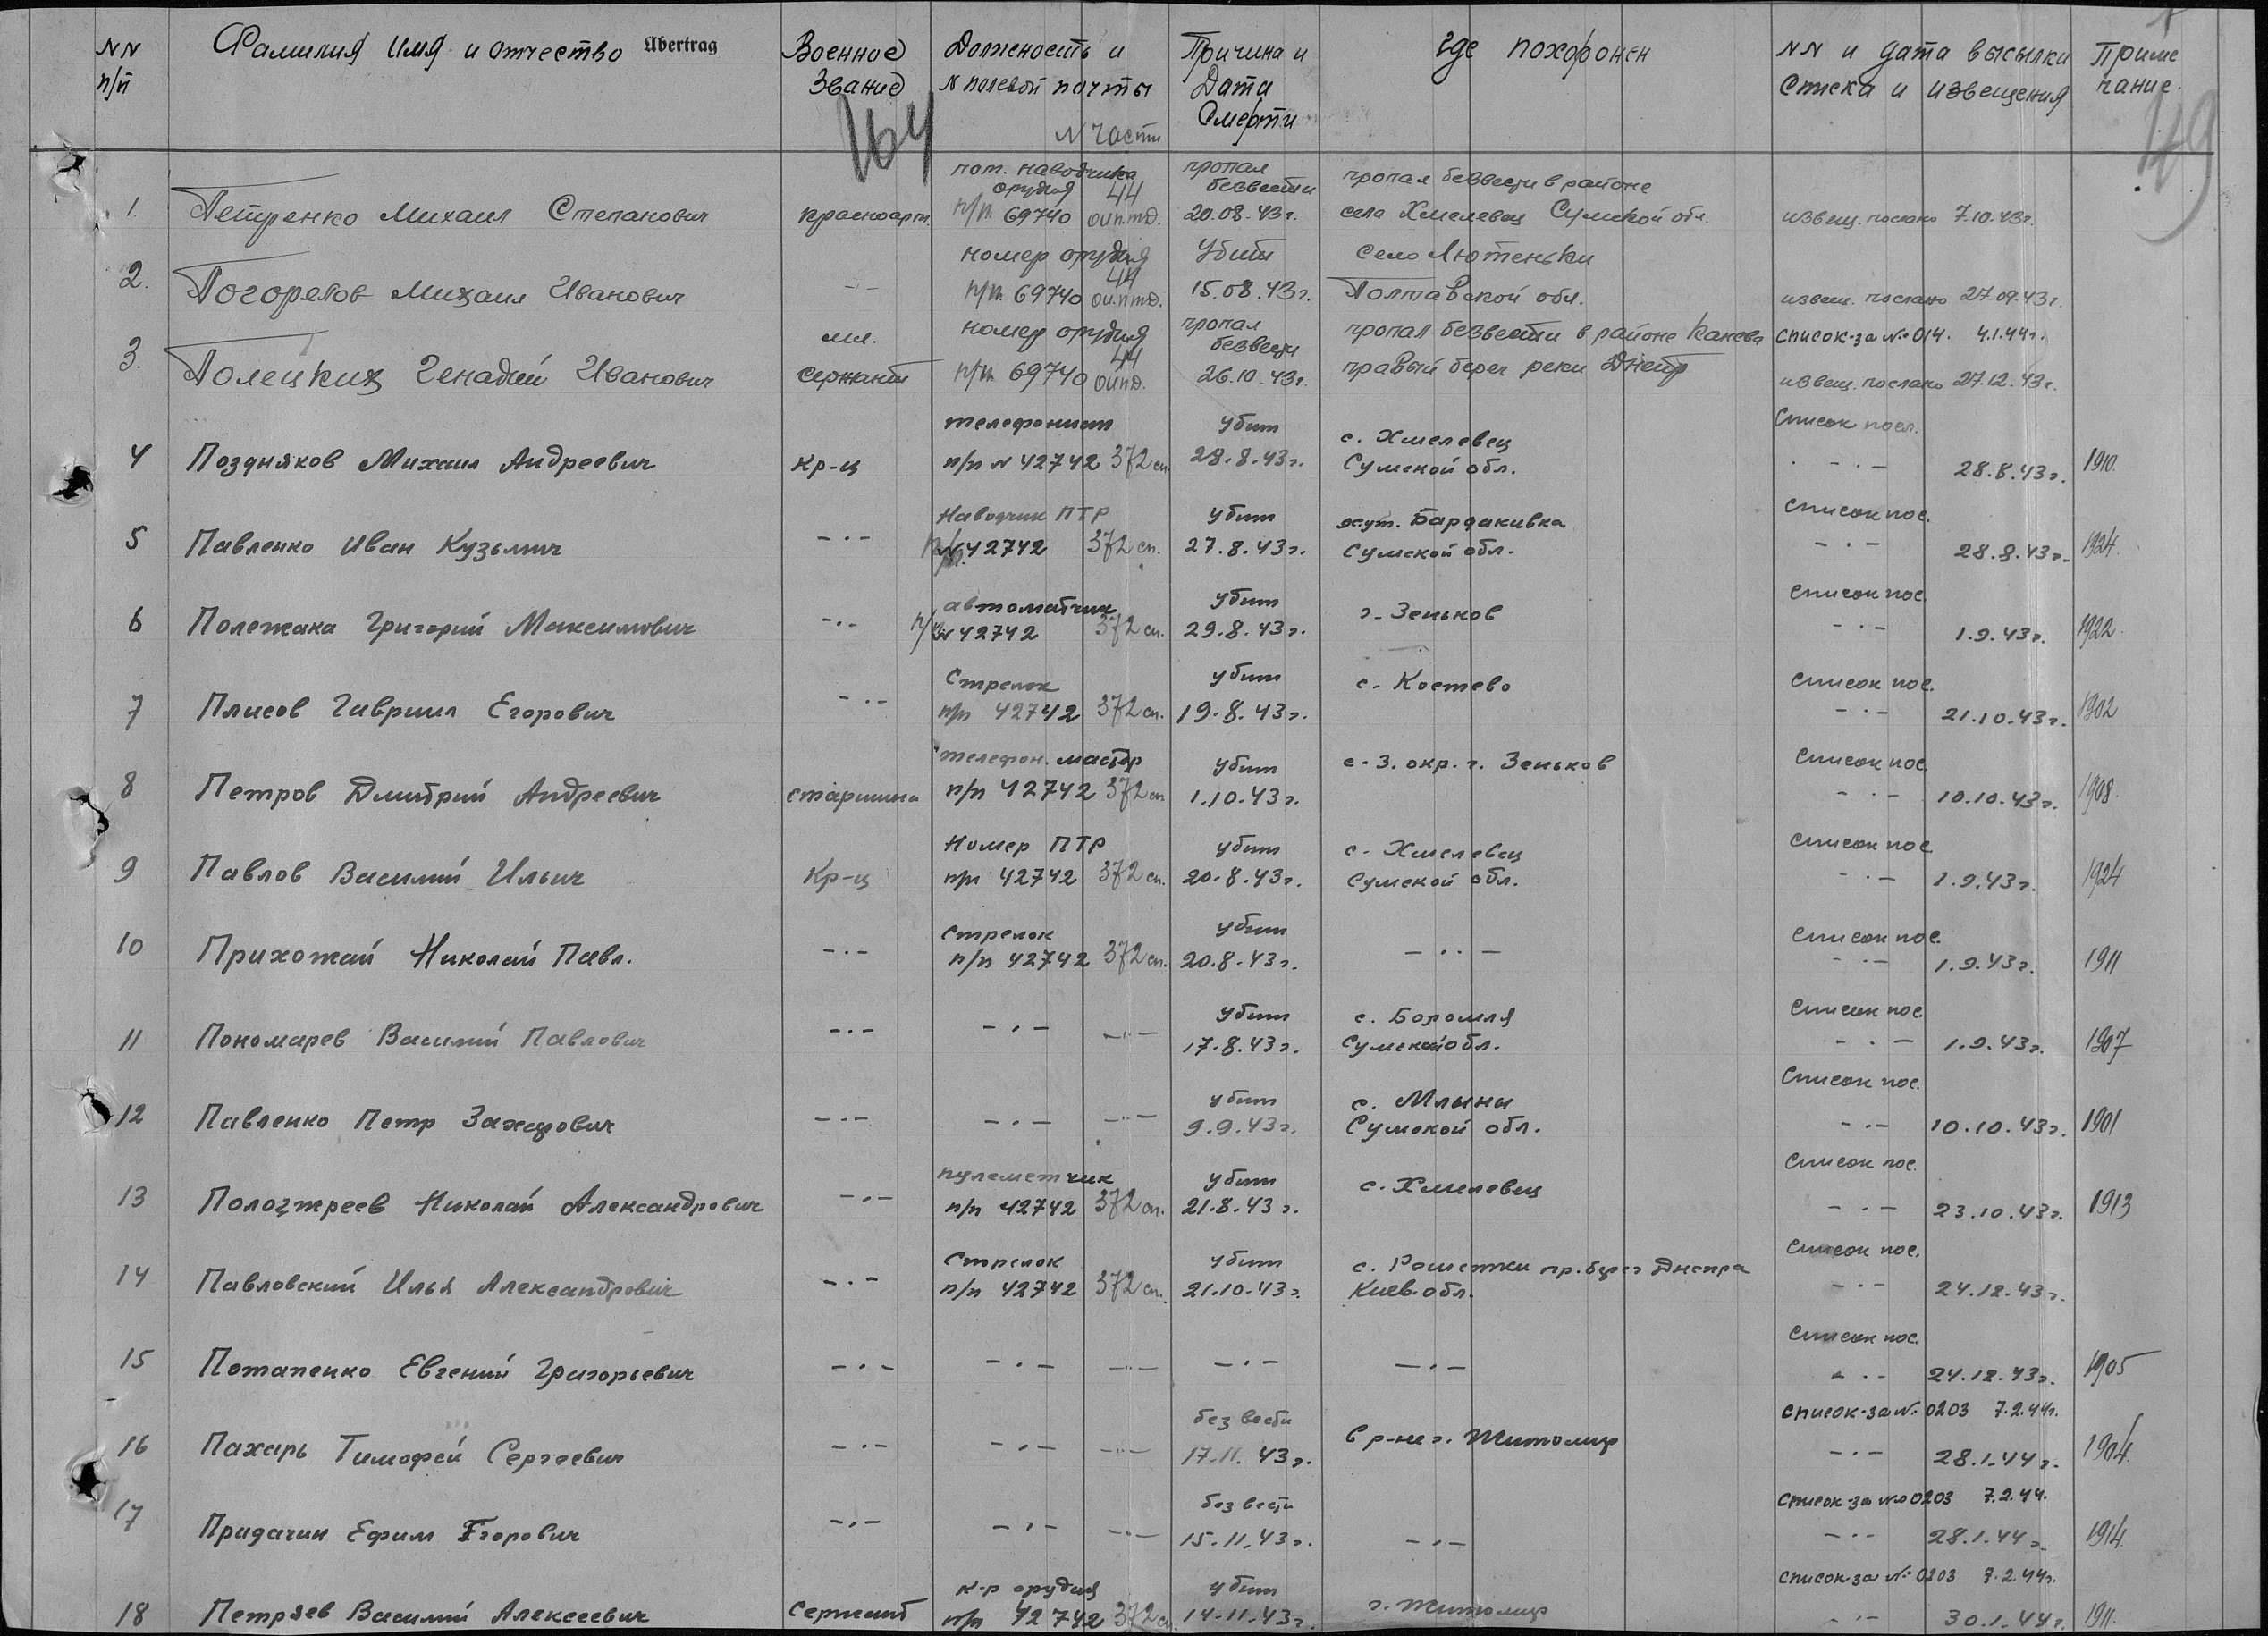 NN п/п Фамилия Имя и отчество Übertrag Военное Звание Должность и N полевой почты N части Причина и Дата Смерти где похоронен NN и дата высылки Списка и извещения Приме чание.
164 149
1. Петренко Михаил Степанович красноарм. пом. наводчика орудия п/п. 69740 44 оиптд. пропал безвести 20.08.43г. пропал безвести в районе села Хмелевец Сумской обл. извещ. послано 7.10.43г.
2. Погорелов Михаил Иванович -"- номер орудия п/п. 69740 44 оиптд. Убит 15.08.43г. село Лютеньки Полтавской обл. извещ. послано 27.09.43г.
3. Полецких Генадий Иванович мл. сержант номер орудия п/п 69740 44 оипд. пропал безвести 26.10.43г. пропал безвести в районе Канева правый берег реки Днепр список-за №014. 4.1.44г. извещ. послано 27.12.43г.
4 Поздняков Михаил Андреевич кр-ц телефонист п/п N 42742 372 сп. убит 28.8.43г. с. Хмелевец Сумской обл. Список посл. - . - 28.8.43г. 1910.
5 Павленко Иван Кузьмич - . - Наводчик ПТР п/п. N 42742 372 сп. убит 27.8.43г. хут. Бардакивка Сумской обл. Список пос. - . - 28.8.43г. 1924.
6 Полежака Григорий Максимович - . - автоматчик п/п N 42742 372 сп. убит 29.8.43г. г. Зеньков Список пос. - . - 1.9.43г. 1922.
7 Плисов Гавриил Егорович - . - Стрелок п/п 42742 372 сп. убит 19.8.43г. с. Костево Список пос. - . - 21.10.43г. 1902
8 Петров Дмитрий Андреевич старшина телефон. мастер п/п 42742 372 сп убит 1.10.43г. с-з. окр. г. Зеньков Список пос. - . - 10.10.43г. 1908.
9 Павлов Василий Ильич Кр-ц Номер ПТР п/п 42742 372 сп. убит 20.8.43г. с. Хмелевец Сумской обл. Список пос - . - 1.9.43г. 1924
10 Прихожай Николай Павл. - . - стрелок п/п 42742 372 сп. убит 20.8.43г. - . . - Список пос. - . - 1.9.43г. 1911
11 Пономарев Василий Павлович - . - - . - - . - убит 17.8.43г. с. Боромля Сумской обл. Список пос. - . - 1.9.43г. 1907
12 Павленко Петр Захарович - . - - . - - . - убит 9.9.43г. с. Млыны Сумской обл. Список пос. - . - 10.10.43г. 1901
13 Николай Александрович - . - пулеметчик п/п 42742 372 сп. убит 21.8.43г. с. Хмелевец Список пос. - . - 23.10.43г. 1913
14 Павловский Илья Александрович - . - Стрелок п/п 42742 372 сп. убит 21.10.43г. с. Решетки пр. берег Днепра Киев. обл. Список пос. - . - 24.12.43г.
15 Потапенко Евгений Григорьевич - . - - . - - . - - . - - . - Список пос. - . - 24.12.43г. 1905
16 Пахарь Тимофей Сергеевич - . - - . - - . - без вести 17.11.43г. в р-не г. Житомир список-за №. 0203 7.2.44г. - . - 28.1.44г. 1904.
17 Придачин Ефим Егорович - . - - . - - . - без вести 15.11.43г. - . - список-за №0203 7.2.44. - . - 28.1.44г. 1914.
18 Петряев Василий Алексеевич Сержант к-р орудия п/п 42742 372 сп. убит 14.11.43г. г. Житомир список-за №. 0203 7.2.44г. - . - 30.1.44г. 1911.